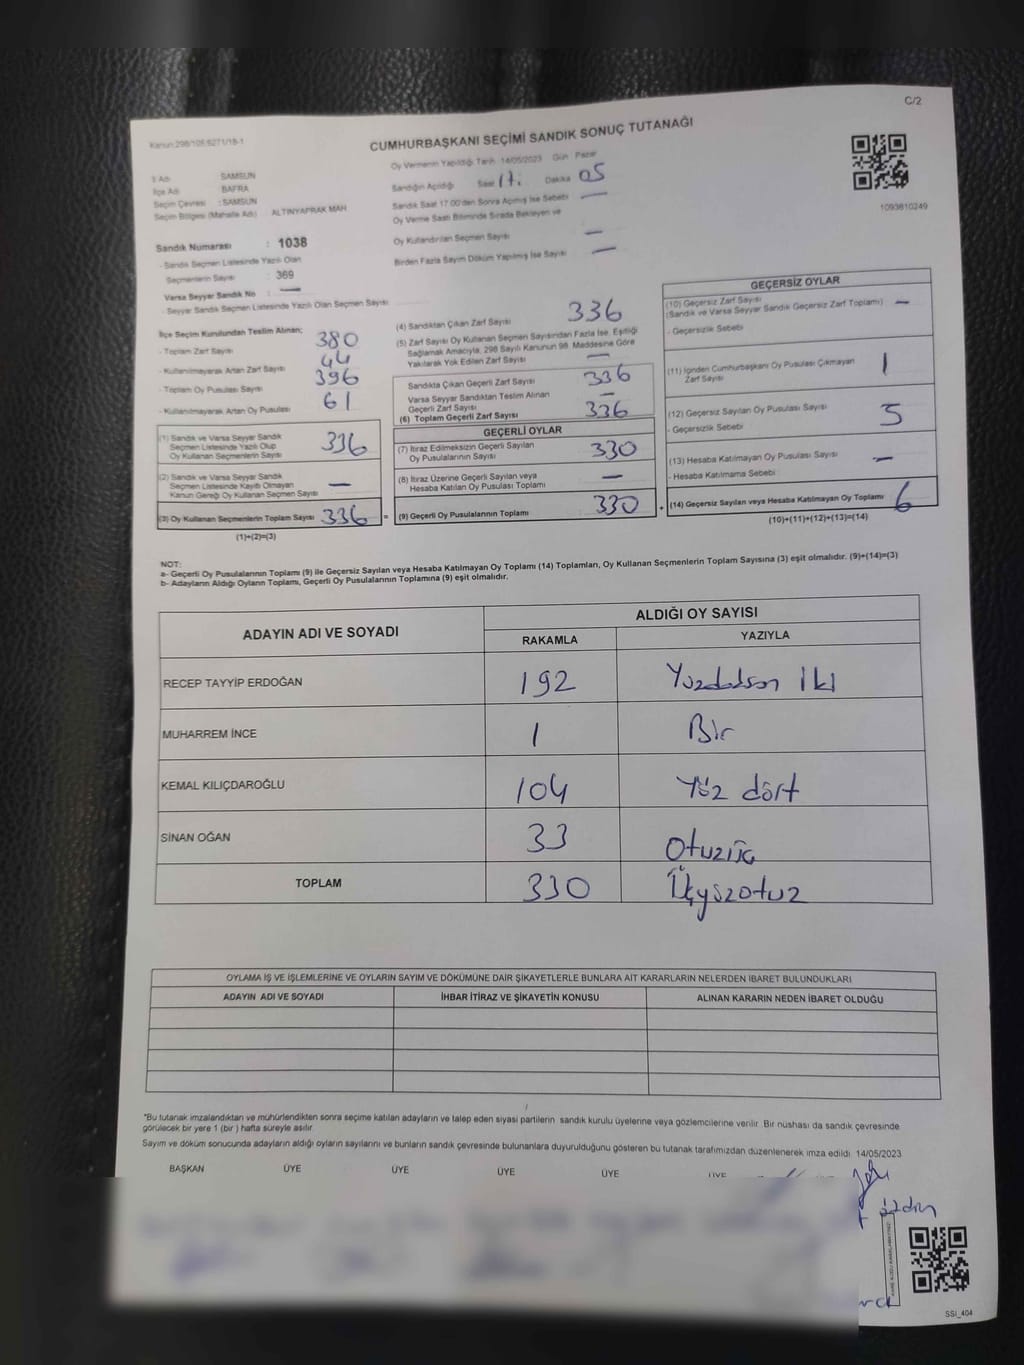 C/2
Kanun 298/105;6271/18-1
CUMHURBAŞKANI SEÇİMİ SANDIK SONUÇ TUTANAĞI
Oy Vermenin Yapıldığı Tarih 14/05/2023 Gün : Pazar
İl Adı SAMSUN
İlçe Adı BAFRA
Seçim Çevresi : SAMSUN
Seçim Bölgesi (Mahalle Adı) : ALTINYAPRAK MAH
Sandığın Açıldığı Saat 17. Dakika 05
Sandık Saat 17.00'den Sonra Açılmış İse Sebebi —
Oy Verme Saati Bitiminde Sırada Bekleyen ve
Oy Kullandırılan Seçmen Sayısı —
Birden Fazla Sayım Döküm Yapılmış İse Sayısı —
1093810249
Sandık Numarası : 1038
- Sandık Seçmen Listesinde Yazılı Olan
Seçmenlerin Sayısı : 369
Varsa Seyyar Sandık No : —
- Seyyar Sandık Seçmen Listesinde Yazılı Olan Seçmen Sayısı
İlçe Seçim Kurulundan Teslim Alınan;
- Toplam Zarf Sayısı 380
- Kullanılmayarak Artan Zarf Sayısı 44
- Toplam Oy Pusulası Sayısı 396
- Kullanılmayarak Artan Oy Pusulası 61
(1) Sandık ve Varsa Seyyar Sandık
Seçmen Listesinde Yazılı Olup
Oy Kullanan Seçmenlerin Sayısı 336
(2) Sandık ve Varsa Seyyar Sandık
Seçmen Listesinde Kayıtlı Olmayan
Kanun Gereği Oy Kullanan Seçmen Sayısı —
(3) Oy Kullanan Seçmenlerin Toplam Sayısı 336 =
(1)+(2)=(3)
(4) Sandıktan Çıkan Zarf Sayısı 336
(5) Zarf Sayısı Oy Kullanan Seçmen Sayısından Fazla İse, Eşitliği
Sağlamak Amacıyla, 298 Sayılı Kanunun 98. Maddesine Göre
Yakılarak Yok Edilen Zarf Sayısı —
Sandıkta Çıkan Geçerli Zarf Sayısı 336
Varsa Seyyar Sandıktan Teslim Alınan
Geçerli Zarf Sayısı —
(6) Toplam Geçerli Zarf Sayısı 336
GEÇERLİ OYLAR
(7) İtiraz Edilmeksizin Geçerli Sayılan
Oy Pusulalarının Sayısı 330
(8) İtiraz Üzerine Geçerli Sayılan veya
Hesaba Katılan Oy Pusulası Toplamı —
(9) Geçerli Oy Pusulalarının Toplamı 330 +
GEÇERSİZ OYLAR
(10) Geçersiz Zarf Sayısı
(Sandık ve Varsa Seyyar Sandık Geçersiz Zarf Toplamı) —
- Geçersizlik Sebebi
(11) İçinden Cumhurbaşkanı Oy Pusulası Çıkmayan
Zarf Sayısı 1
(12) Geçersiz Sayılan Oy Pusulası Sayısı 5
- Geçersizlik Sebebi
(13) Hesaba Katılmayan Oy Pusulası Sayısı —
- Hesaba Katılmama Sebebi
(14) Geçersiz Sayılan veya Hesaba Katılmayan Oy Toplamı 6
(10)+(11)+(12)+(13)=(14)
NOT:
a- Geçerli Oy Pusulalarının Toplamı (9) ile Geçersiz Sayılan veya Hesaba Katılmayan Oy Toplamı (14) Toplamları, Oy Kullanan Seçmenlerin Toplam Sayısına (3) eşit olmalıdır. (9)+(14)=(3)
b- Adayların Aldığı Oyların Toplamı, Geçerli Oy Pusulalarının Toplamına (9) eşit olmalıdır.
ADAYIN ADI VE SOYADI ALDIĞI OY SAYISI
RAKAMLA YAZIYLA
RECEP TAYYİP ERDOĞAN 192 Yüzdoksan iki
MUHARREM İNCE 1 Bir
KEMAL KILIÇDAROĞLU 104 Yüz dört
SİNAN OĞAN 33 Otuzüç
TOPLAM 330 Üçyüzotuz
OYLAMA İŞ VE İŞLEMLERİNE VE OYLARIN SAYIM VE DÖKÜMÜNE DAİR ŞİKAYETLERLE BUNLARA AİT KARARLARIN NELERDEN İBARET BULUNDUKLARI
ADAYIN ADI VE SOYADI İHBAR İTİRAZ VE ŞİKAYETİN KONUSU ALINAN KARARIN NEDEN İBARET OLDUĞU
*Bu tutanak imzalandıktan ve mühürlendikten sonra seçime katılan adayların ve talep eden siyasi partilerin sandık kurulu üyelerine veya gözlemcilerine verilir. Bir nüshası da sandık çevresinde
görülecek bir yere 1 (bir) hafta süreyle asılır.
Sayım ve döküm sonucunda adayların aldığı oyların sayılarını ve bunların sandık çevresinde bulunanlara duyurulduğunu gösteren bu tutanak tarafımızdan düzenlenerek imza edildi. 14/05/2023
BAŞKAN ÜYE ÜYE ÜYE ÜYE ÜYE
SSI_404